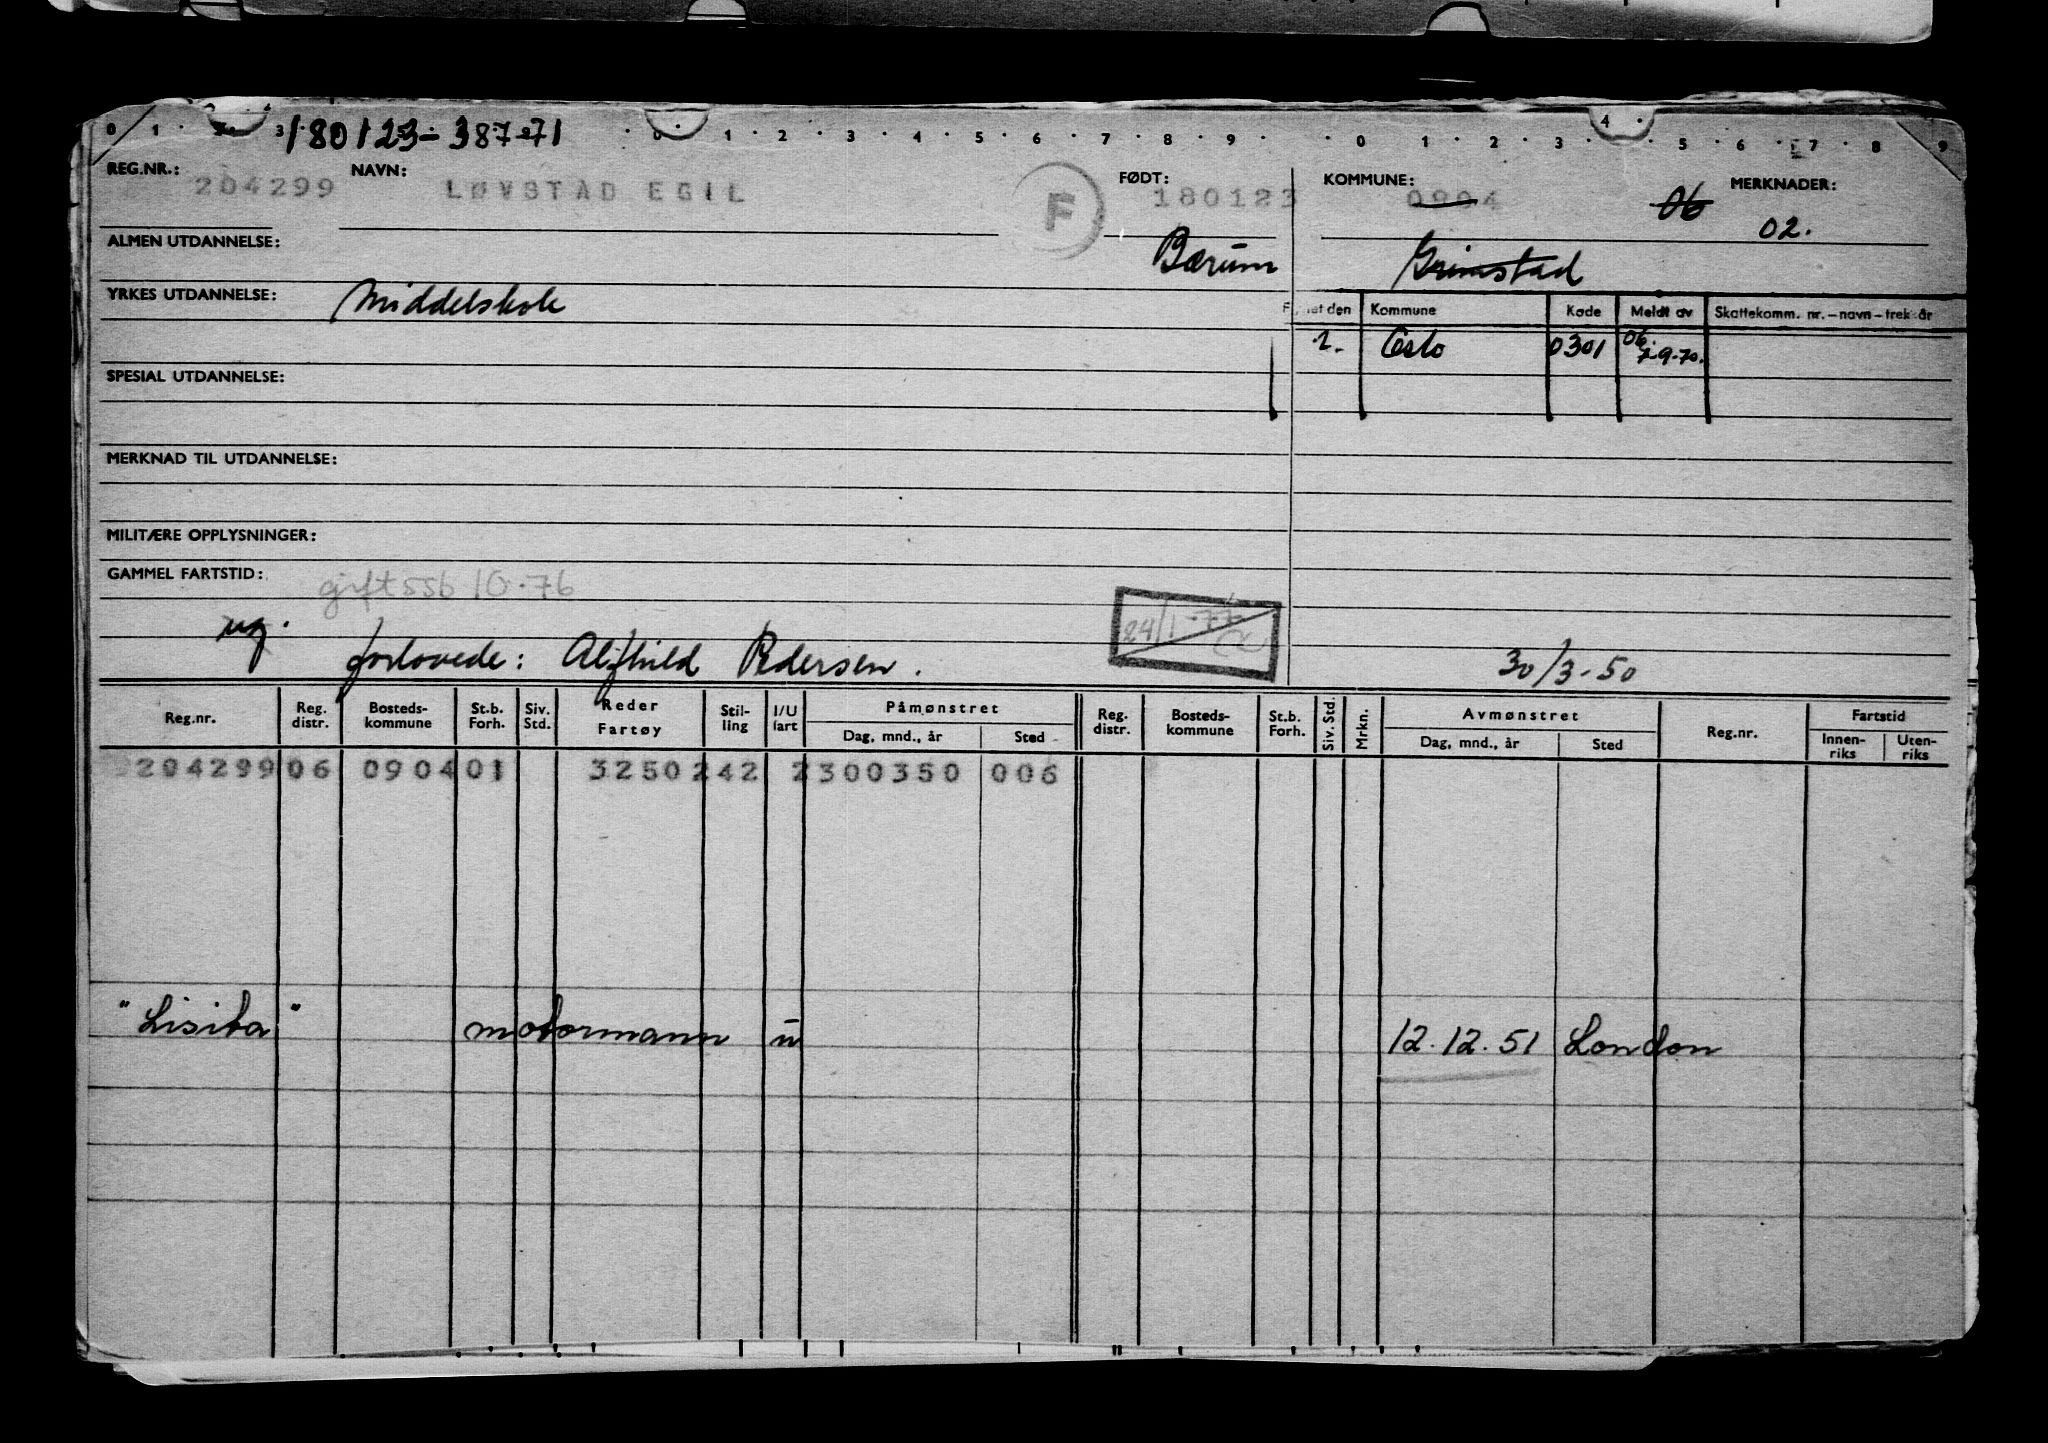 180123-38771
0 1 3 0 1 2 3 4 5 6 7 8 9 0 1 2 3 4 5 6 7 8 9
REG.NR.: 204299 NAVN: LØVSTAD EGIL F FØDT: 180123 KOMMUNE: 0904 06 MERKNADER: 02.
ALMEN UTDANNELSE: Bærum Grimstad
YRKES UTDANNELSE: Middelskole
Kommune Kode Meldt av Skattekomm. nr. – navn – trekk år
Oslo 0301 06. 7-9-70.
SPESIAL UTDANNELSE:
MERKNAD TIL UTDANNELSE:
MILITÆRE OPPLYSNINGER:
GAMMEL FARTSTID:
gift ssb 10.76
ug. forlovede: Alfhild Pedersen. 24/1-77 30/3-50
Reg.nr. Reg. distr. Bosteds-kommune St.b. Forh. Siv. Std. Reder Fartøy Stil-ling I/U fart Påmønstret Dag, mnd., år Sted Reg. distr. Bosteds-kommune St.b. Forh. Siv. Std. Mrkn. Avmønstret Dag, mnd., år Sted Reg.nr. Fartstid Innen-riks Uten-riks
204299 06 0904 01 3250 242 2 300350 006
"Lisita" motormann u 12.12.51 London